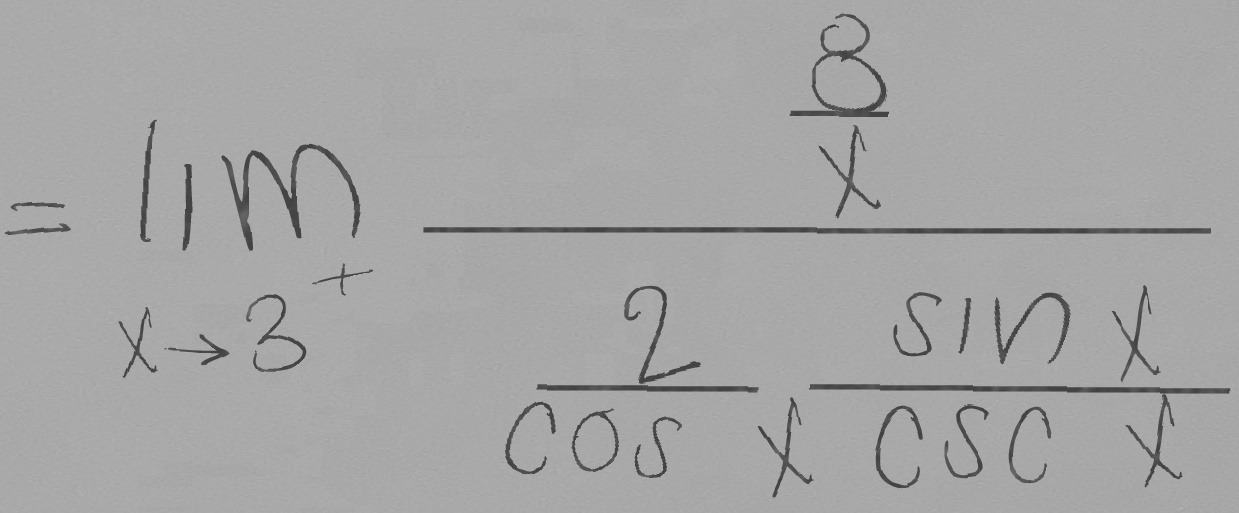 = lim x→3⁺ \frac{\frac{8}{x}}{\frac{2}{cos x} \frac{sin x}{csc x}}